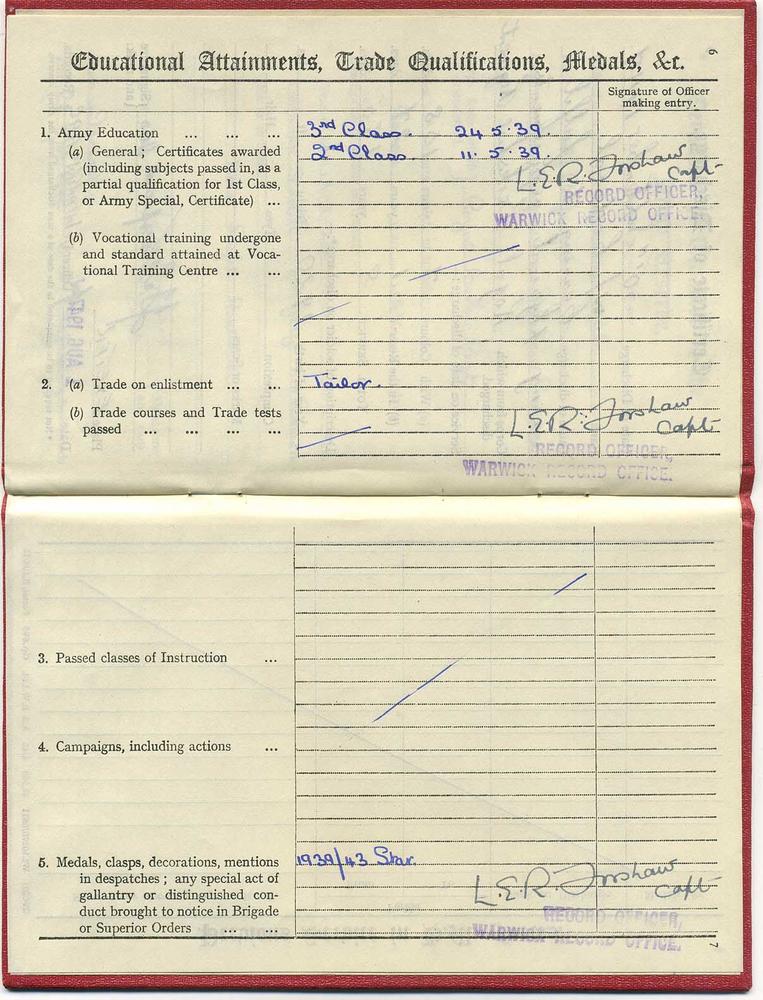 6
Educational Attainments, Trade Qualifications, Medals, &c.
Signature of Officer
making entry.
1. Army Education ... ... ...
3rd Class. 24 5·39.
(a) General; Certificates awarded
2nd Class. 11. 5·39.
(including subjects passed in, as a
partial qualification for 1st Class,
or Army Special, Certificate) ...
L.E.R. Forshaw
Capt
RECORD OFFICER,
WARWICK RECORD OFFICE.
(b) Vocational training undergone
and standard attained at Voca-
tional Training Centre ... ...
2. (a) Trade on enlistment ... ...
Tailor.
(b) Trade courses and Trade tests
passed ... ... ... ...
L.E.R. Forshaw
Capt
RECORD OFFICER,
WARWICK RECORD OFFICE.
3. Passed classes of Instruction ...
4. Campaigns, including actions ...
5. Medals, clasps, decorations, mentions
1939/43 Star.
in despatches; any special act of
gallantry or distinguished con-
duct brought to notice in Brigade
or Superior Orders ... ...
L.E.R. Forshaw
Capt
RECORD OFFICER,
WARWICK RECORD OFFICE.
7